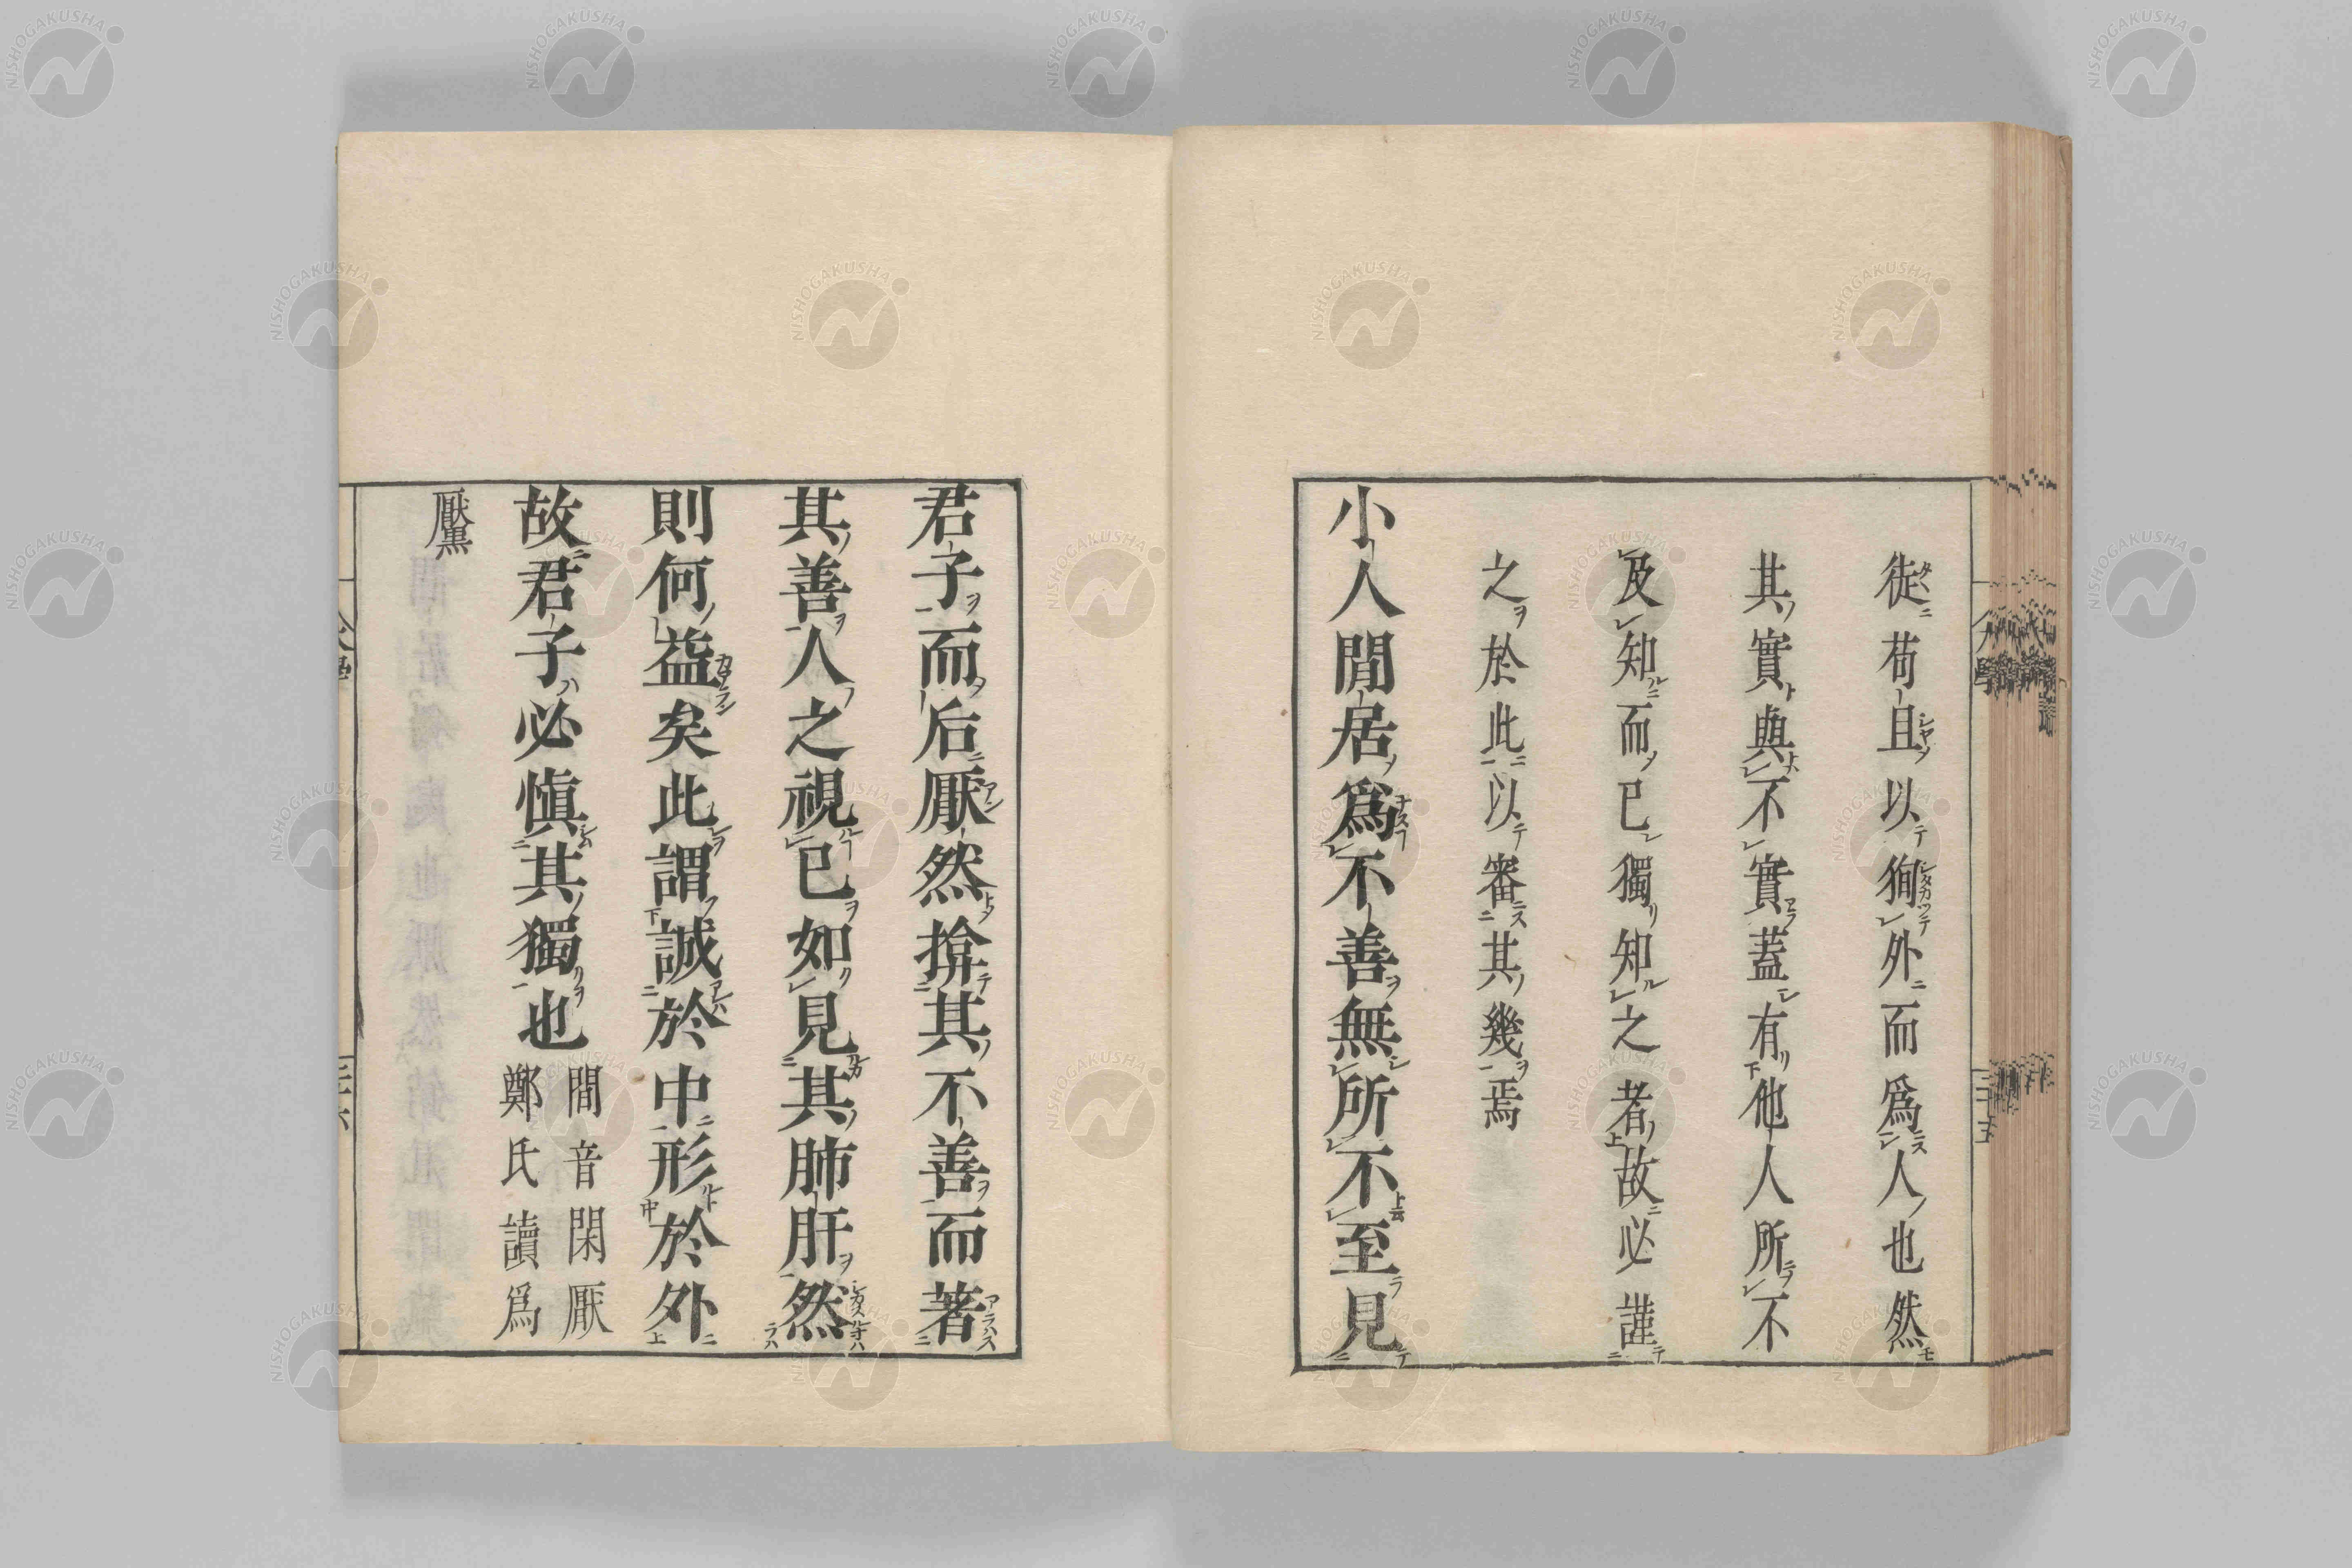 徒苟且以狥外而爲人也然
其實與不實蓋有他人所不
及知而已獨知之者故必謹
之於此以審其幾焉
小人閒居爲不善無所不至見
君子而后厭然揜其不善而著
其善人之視已如見其肺肝然
則何益矣此謂誠於中形於外
故君子必慎其獨也
閒音閑厭
鄭氏讀爲
黶